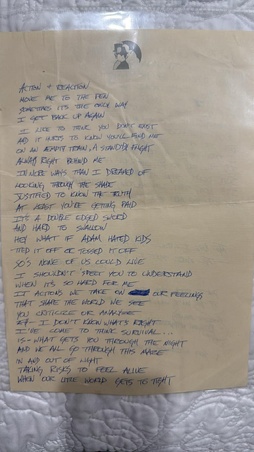 ACTION & REACTION
MOVE ME TO THE PEN
SOMETIMES IT'S THE ONLY WAY
I GET BACK UP AGAIN
I LIKE TO THINK YOU DON'T EXIST
AND IT HURTS TO KNOW YOU'LL FIND ME
ON AN EMPTY TRAIN, A STANDBY FLIGHT
ALWAYS RIGHT BEHIND ME
IN MORE WAYS THAN I DREAMED OF
LOOKING THROUGH THE SHADE
JUSTIFIED TO KNOW THE TRUTH
AT LEAST YOU'RE GETTING PAID
IT'S A DOUBLE EDGED SWORD
AND HARD TO SWALLOW
HEY WHAT IF ADAM HATED KIDS
TIED IT OFF OR TOSSED IT OFF
SO'S NONE OF US COULD LIVE
I SHOULDN'T EXPECT YOU TO UNDERSTAND
WHEN IT'S SO HARD FOR ME
IT ACTIONS WE TAKE ON OUR FEELINGS
THAT SHAPE THE WORLD WE SEE
YOU CRITICIZE OR ANALYZE
I DON'T KNOW WHAT'S RIGHT
I'VE COME TO THINK SURVIVAL...
IS WHAT GETS YOU THROUGH THE NIGHT
AND WE ALL GO THROUGH THIS MAZE
IN AND OUT OF LIGHT
TAKING RISKS TO FEEL ALIVE
WHEN OUR LITTLE WORLD GETS TO TIGHT